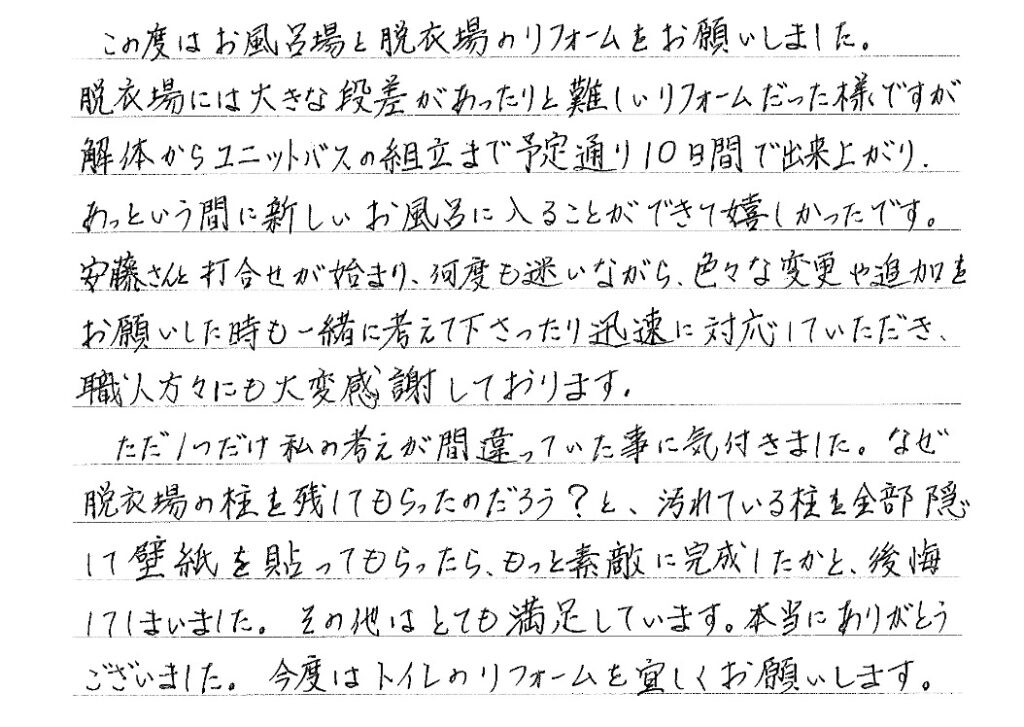 この度はお風呂場と脱衣場のリフォームをお願いしました。
脱衣場には大きな段差があったりと難しいリフォームだった様ですが
解体からユニットバスの組立まで予定通り10日間で出来上がり、
あっという間に新しいお風呂に入ることができて嬉しかったです。
安藤さんと打合せが始まり、何度も迷いながら、色々な変更や追加を
お願いした時も一緒に考えて下さったり迅速に対応していただき、
職人方々にも大変感謝しております。
ただ1つだけ私の考えが間違っていた事に気付きました。なぜ
脱衣場の柱を残してもらったのだろう?と、汚れている柱を全部隠
して壁紙を貼ってもらったら、もっと素敵に完成したかと、後悔
してしまいました。その他はとても満足しています。本当にありがとう
ございました。今度はトイレのリフォームを宜しくお願いします。